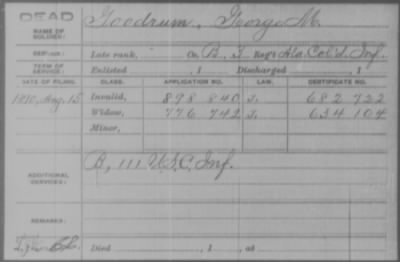 DEAD
NAME OF SOLDIER: Goodrum, George M.
SERVICE: Late rank, Co. B, 3 Reg't Ala Col'd Inf.
TERM OF SERVICE: Enlisted , 1 Discharged , 1
DATE OF FILING. CLASS. APPLICATION NO. LAW. CERTIFICATE NO.
1890, Aug. 15 Invalid, 898 840 J. 682 722
Widow, 776 742 J. 634 104
Minor,
ADDITIONAL SERVICES: B, 111 U.S.C. Inf.
REMARKS:
Died , 1 , at